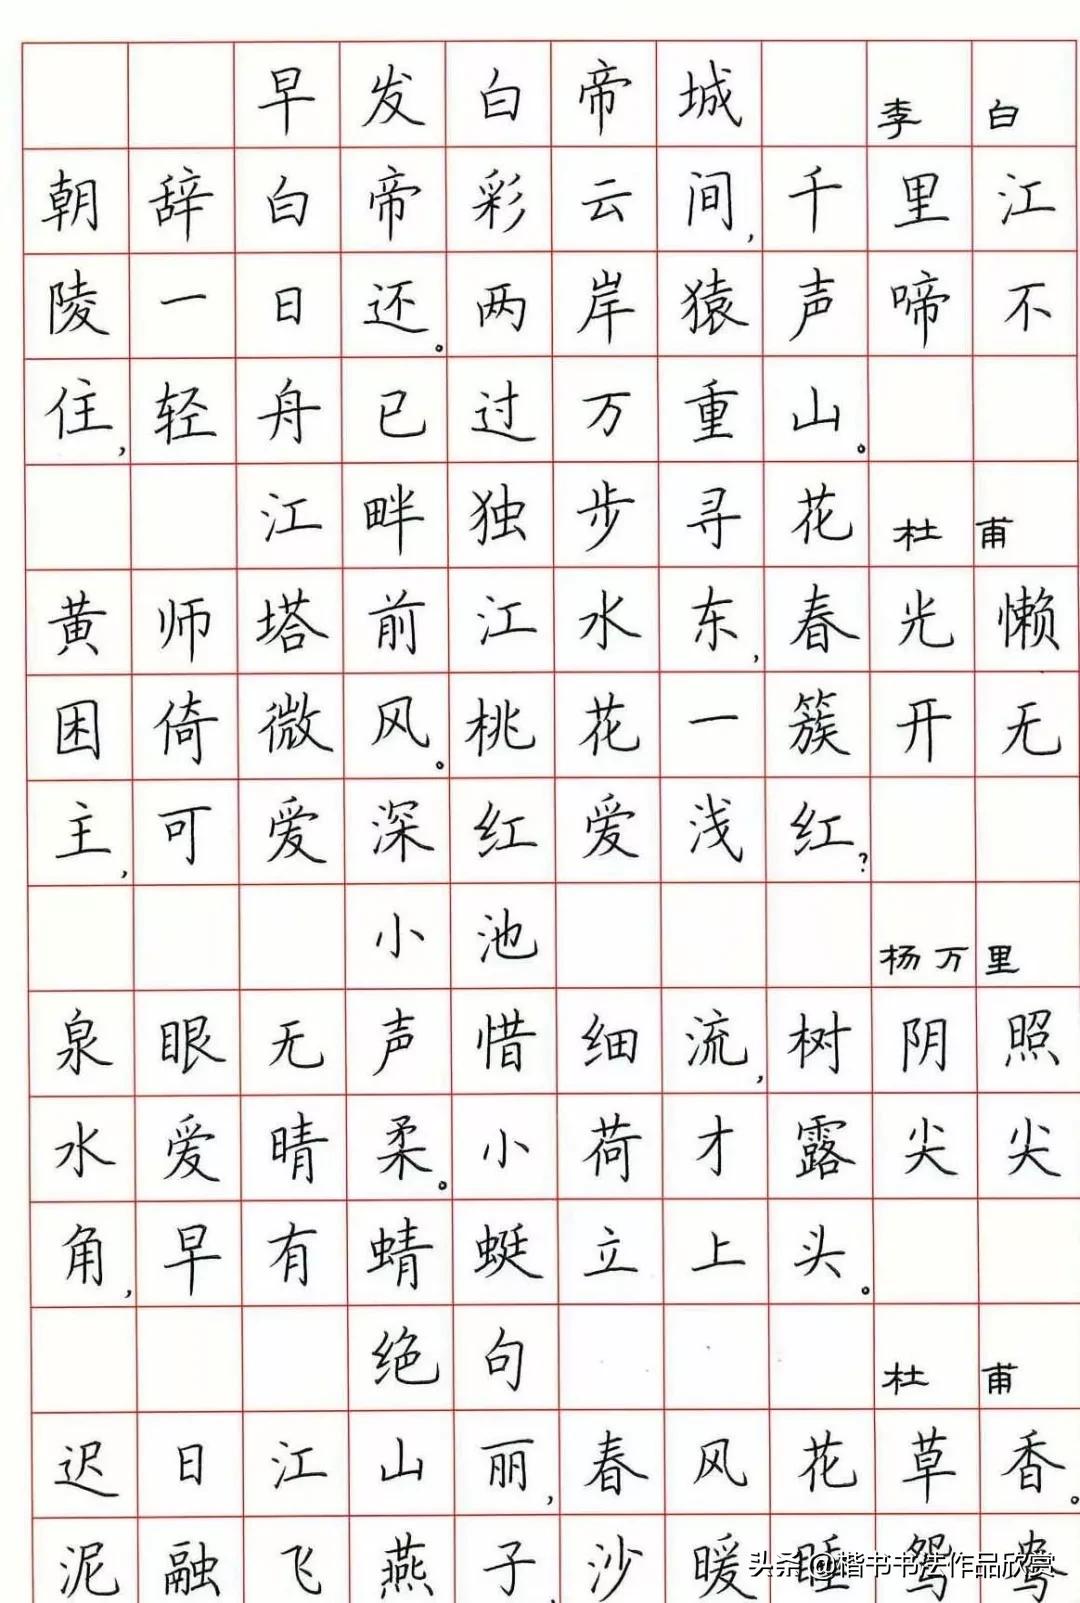 早发白帝城 李白
朝辞白帝彩云间,千里江
陵一日还。两岸猿声啼不
住,轻舟已过万重山。
江畔独步寻花 杜甫
黄师塔前江水东,春光懒
困倚微风。桃花一簇开无
主,可爱深红爱浅红?
小池 杨万里
泉眼无声惜细流,树阴照
水爱晴柔。小荷才露尖尖
角,早有蜻蜓立上头。
绝句 杜甫
迟日江山丽,春风花草香。
泥融飞燕子,沙暖睡鸳鸯
头条@楷书书法作品欣赏